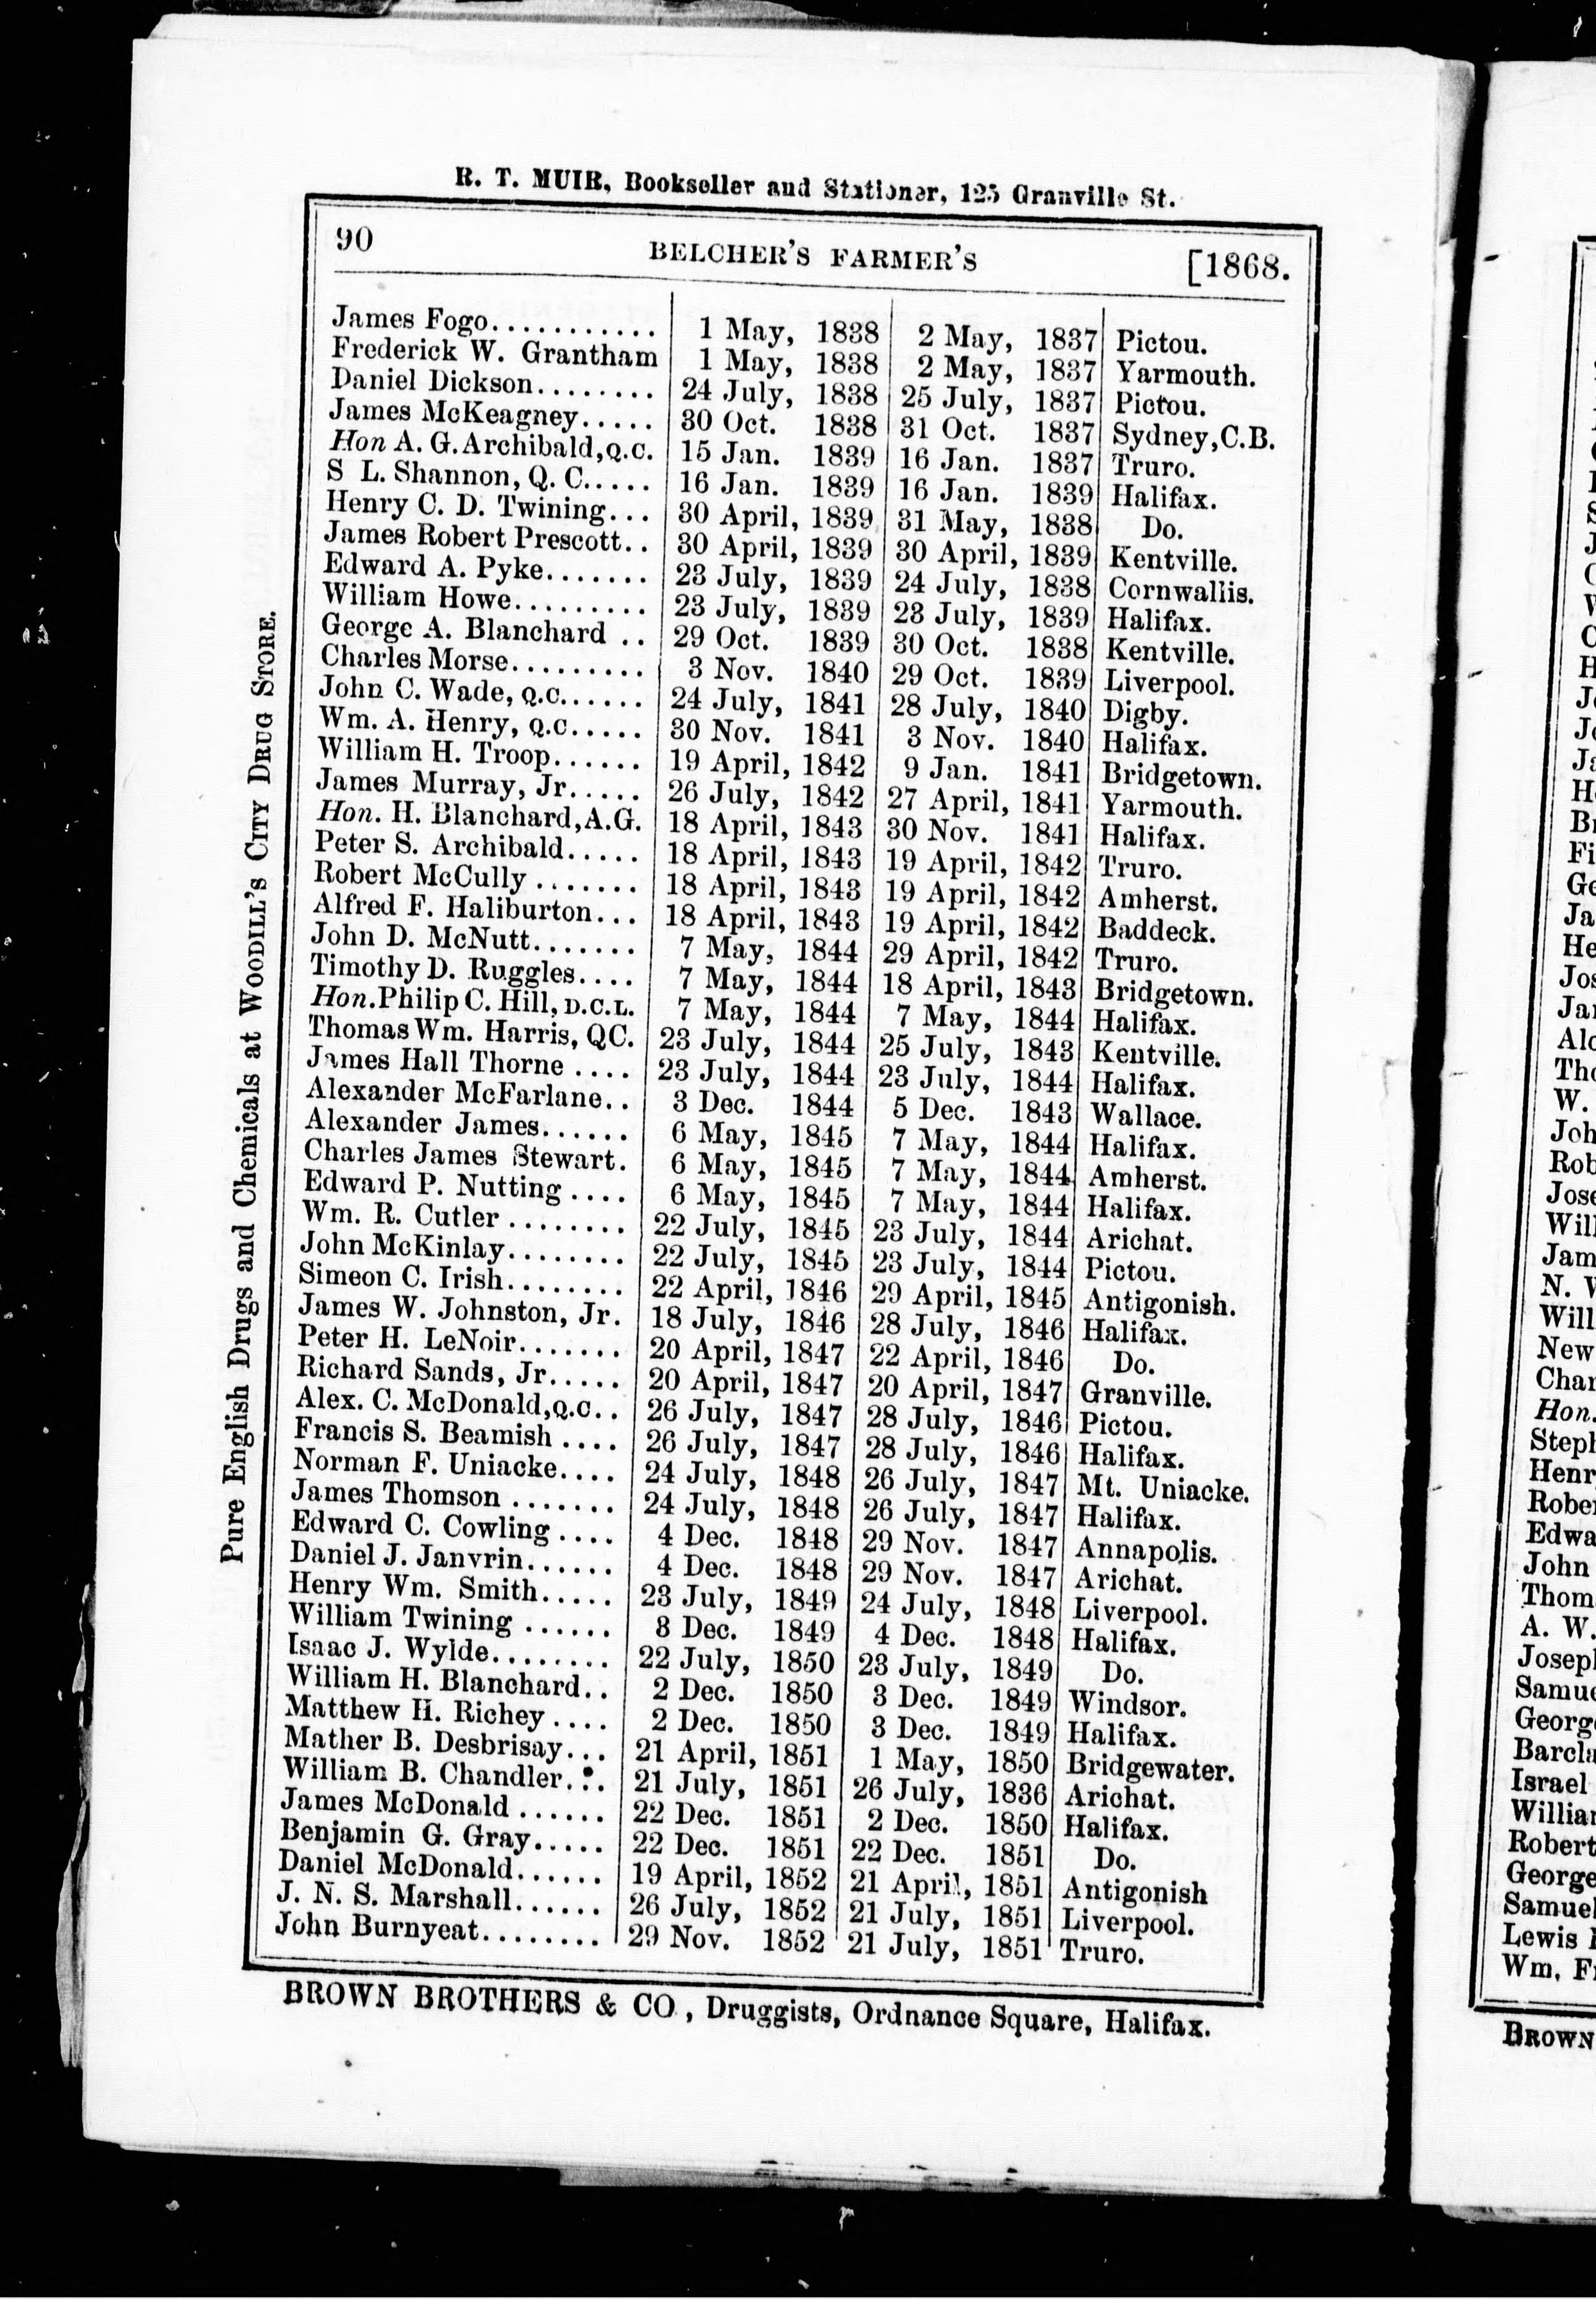 R. T. MUIR, Bookseller and Stationer, 125 Granville St.
90 BELCHER'S FARMER'S [1868.
James Fogo............ 1 May, 1838 2 May, 1837 Pictou.
Frederick W. Grantham 1 May, 1838 2 May, 1837 Yarmouth.
Daniel Dickson......... 24 July, 1838 25 July, 1837 Pictou.
James McKeagney..... 30 Oct. 1838 31 Oct. 1837 Sydney,C.B.
Hon A. G. Archibald,Q.C. 15 Jan. 1839 16 Jan. 1837 Truro.
S L. Shannon, Q. C..... 16 Jan. 1839 16 Jan. 1839 Halifax.
Henry C. D. Twining... 30 April, 1839 31 May, 1838 Do.
James Robert Prescott.. 30 April, 1839 30 April, 1839 Kentville.
Edward A. Pyke....... 23 July, 1839 24 July, 1838 Cornwallis.
William Howe......... 23 July, 1839 23 July, 1839 Halifax.
George A. Blanchard .. 29 Oct. 1839 30 Oct. 1838 Kentville.
Charles Morse......... 3 Nov. 1840 29 Oct. 1839 Liverpool.
John C. Wade, Q.C...... 24 July, 1841 28 July, 1840 Digby.
Wm. A. Henry, Q.C..... 30 Nov. 1841 3 Nov. 1840 Halifax.
William H. Troop...... 19 April, 1842 9 Jan. 1841 Bridgetown.
James Murray, Jr..... 26 July, 1842 27 April, 1841 Yarmouth.
Hon. H. Blanchard,A.G. 18 April, 1843 30 Nov. 1841 Halifax.
Peter S. Archibald..... 18 April, 1843 19 April, 1842 Truro.
Robert McCully ....... 18 April, 1843 19 April, 1842 Amherst.
Alfred F. Haliburton... 18 April, 1843 19 April, 1842 Baddeck.
John D. McNutt....... 7 May, 1844 29 April, 1842 Truro.
Timothy D. Ruggles.... 7 May, 1844 18 April, 1843 Bridgetown.
Hon. Philip C. Hill, D.C.L. 7 May, 1844 7 May, 1844 Halifax.
Thomas Wm. Harris, QC. 23 July, 1844 25 July, 1843 Kentville.
James Hall Thorne .... 23 July, 1844 23 July, 1844 Halifax.
Alexander McFarlane.. 3 Dec. 1844 5 Dec. 1843 Wallace.
Alexander James...... 6 May, 1845 7 May, 1844 Halifax.
Charles James Stewart. 6 May, 1845 7 May, 1844 Amherst.
Edward P. Nutting .... 6 May, 1845 7 May, 1844 Halifax.
Wm. R. Cutler ........ 22 July, 1845 23 July, 1844 Arichat.
John McKinlay........ 22 July, 1845 23 July, 1844 Pictou.
Simeon C. Irish........ 22 April, 1846 29 April, 1845 Antigonish.
James W. Johnston, Jr. 18 July, 1846 28 July, 1846 Halifax.
Peter H. LeNoir....... 20 April, 1847 22 April, 1846 Do.
Richard Sands, Jr..... 20 April, 1847 20 April, 1847 Granville.
Alex. C. McDonald,Q.C.. 26 July, 1847 28 July, 1846 Pictou.
Francis S. Beamish .... 26 July, 1847 28 July, 1846 Halifax.
Norman F. Uniacke.... 24 July, 1848 26 July, 1847 Mt. Uniacke.
James Thomson ....... 24 July, 1848 26 July, 1847 Halifax.
Edward C. Cowling .... 4 Dec. 1848 29 Nov. 1847 Annapolis.
Daniel J. Janvrin...... 4 Dec. 1848 29 Nov. 1847 Arichat.
Henry Wm. Smith..... 23 July, 1849 24 July, 1848 Liverpool.
William Twining ...... 3 Dec. 1849 4 Dec. 1848 Halifax.
Isaac J. Wylde........ 22 July, 1850 23 July, 1849 Do.
William H. Blanchard.. 2 Dec. 1850 3 Dec. 1849 Windsor.
Matthew H. Richey .... 2 Dec. 1850 3 Dec. 1849 Halifax.
Mather B. Desbrisay... 21 April, 1851 1 May, 1850 Bridgewater.
William B. Chandler... 21 July, 1851 26 July, 1836 Arichat.
James McDonald ...... 22 Dec. 1851 2 Dec. 1850 Halifax.
Benjamin G. Gray..... 22 Dec. 1851 22 Dec. 1851 Do.
Daniel McDonald...... 19 April, 1852 21 April, 1851 Antigonish
J. N. S. Marshall...... 26 July, 1852 21 July, 1851 Liverpool.
John Burnyeat........ 29 Nov. 1852 21 July, 1851 Truro.
BROWN BROTHERS & CO., Druggists, Ordnance Square, Halifax.
Pure English Drugs and Chemicals at WOODILL'S CITY DRUG STORE.
Fi
Ge
Ja
He
Jos
Jan
Alc
Tho
W.
Joh
Rob
Jose
Will
Jam
N. W
Will
New
Char
Hon.
Steph
Henr
Rober
Edwa
John
Thom
A. W.
Joseph
Samue
George
Barcla
Israel
William
Robert
George
Samuel
Lewis
Wm. Fr
BROWN